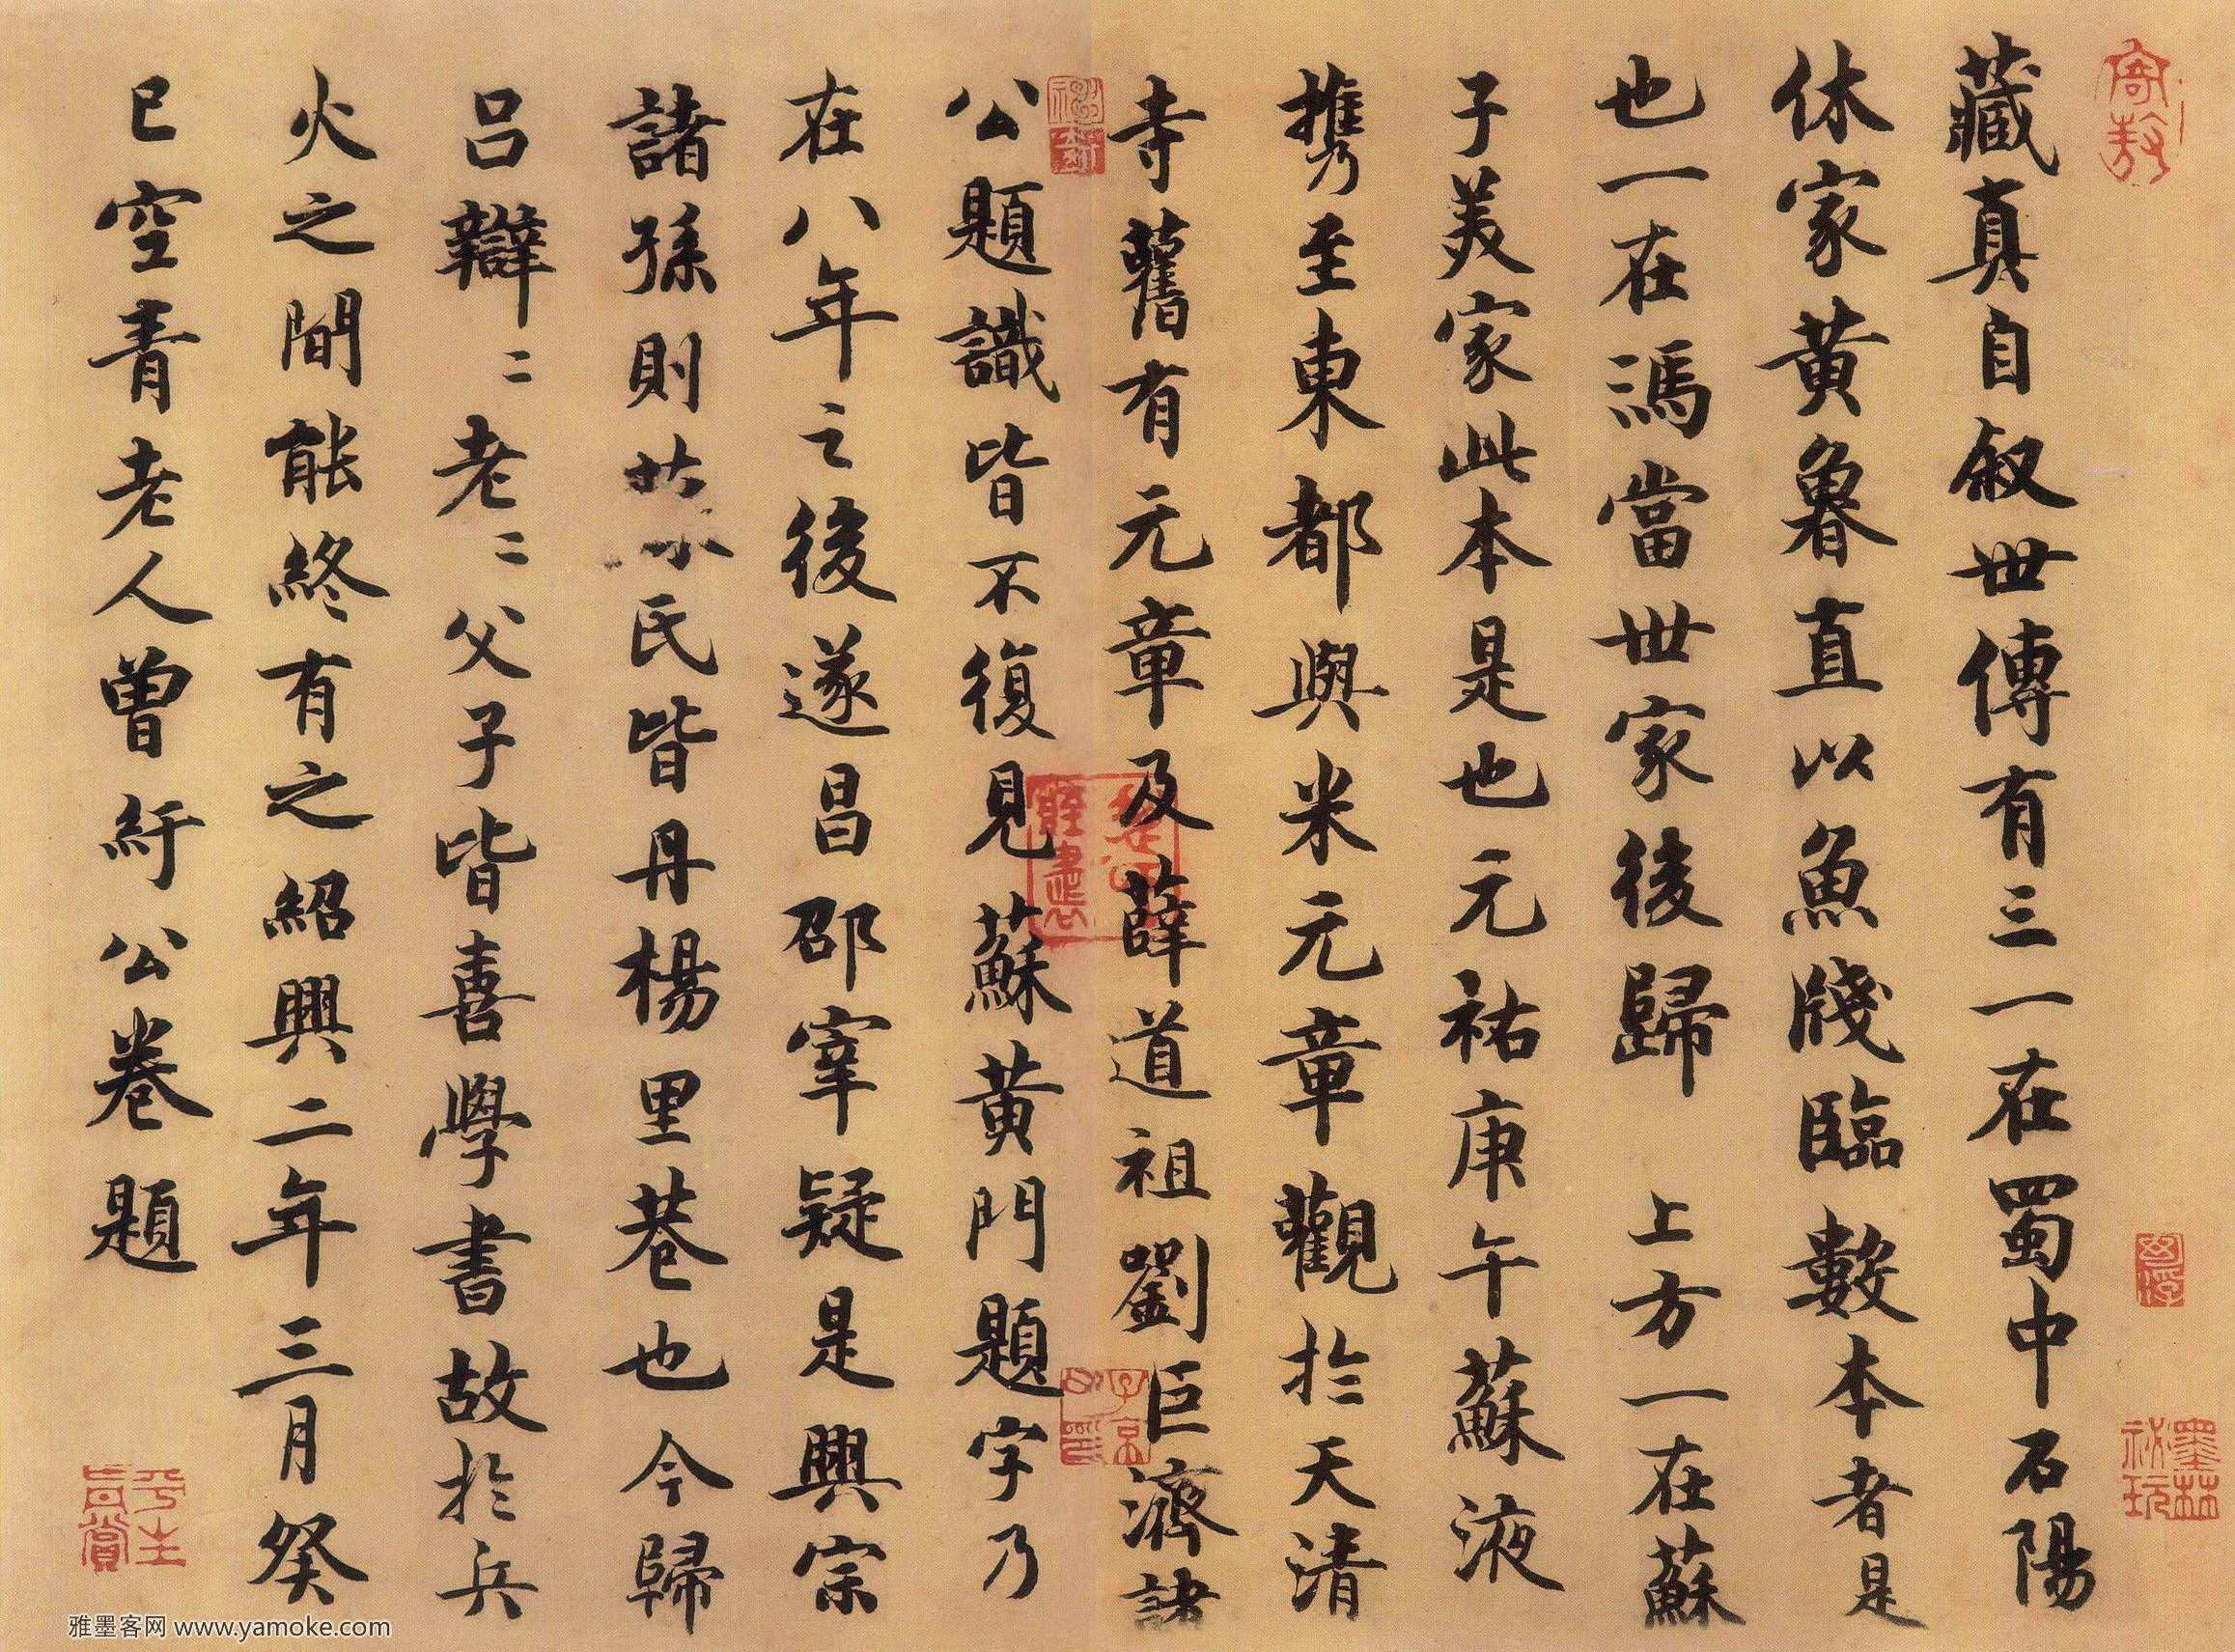 藏真自叙世傳有三一在蜀中石陽
休家黄魯直以魚牋臨數本者是
也一在馮當世家後歸 上方一在蘇
子美家此本是也元祐庚午蘇液
携至東都與米元章觀於天清
寺舊有元章及薛道祖劉巨濟諸
公題識皆不復見蘇黄門題字乃
在八年之後遂昌邵宰疑是興宗
諸孫則蘇氏皆丹楊里巷也今歸
吕辯二老二父子皆喜學書故於兵
火之間能終有之紹興二年三月癸
巳空青老人曾紆公卷題
墨林祕玩
子京
平生真賞
雅墨客网 www.yamoke.com